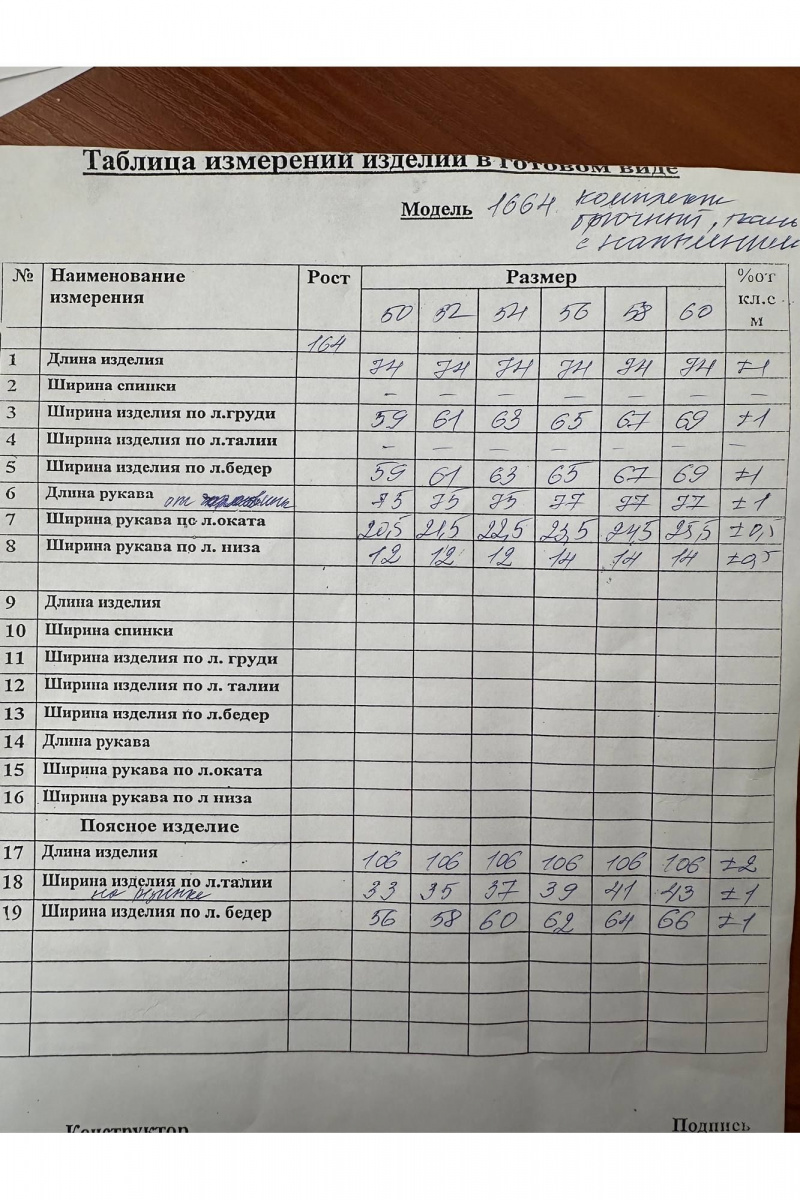 Таблица измерений изделий в готовом виде
Модель 1664. комплект
брючный, ткань
с напылением
№ Наименование измерения Рост Размер %от кл.с м
50 52 54 56 58 60
164
1 Длина изделия 74 74 74 74 74 74 ±1
2 Ширина спинки – – – – – – –
3 Ширина изделия по л.груди 59 61 63 65 67 69 ±1
4 Ширина изделия по л.талии – – – – – –
5 Ширина изделия по л.бедер 59 61 63 65 67 69 ±1
6 Длина рукава от 75 75 75 77 77 77 ±1
7 Ширина рукава по л.оката 20,5 21,5 22,5 23,5 24,5 25,5 ±0,5
8 Ширина рукава по л. низа 12 12 12 14 14 14 ±0,5
9 Длина изделия
10 Ширина спинки
11 Ширина изделия по л. груди
12 Ширина изделия по л. талии
13 Ширина изделия по л.бедер
14 Длина рукава
15 Ширина рукава по л.оката
16 Ширина рукава по л низа
Поясное изделие
17 Длина изделия 106 106 106 106 106 106 ±2
18 Ширина изделия по л.талии 33 35 37 39 41 43 ±1
на резинке
19 Ширина изделия по л. бедер 56 58 60 62 64 66 ±1
Конструктор Подпись